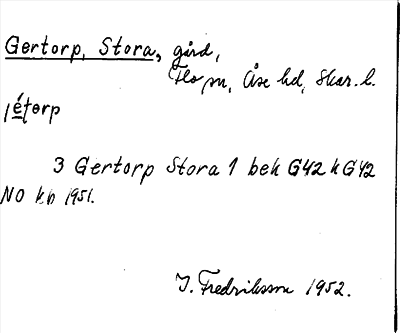 Gertorp, Stora, gård,
Flo sn, Åse hd, Skar. l.
jétorp
3 Gertorp Stora 1 bek G42 k G42
NO kb 1951.
I. Fredriksson 1952.